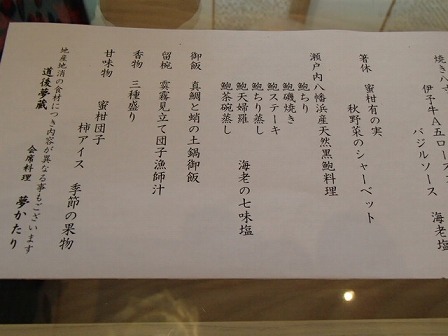 焼き八寸
伊予牛A五ロース
バジルソース 海老塩
箸休 蜜柑有の実
秋野菜のシャーベット
瀬戸内八幡浜産天然黒鮑料理
鮑ちり
鮑磯焼き
鮑ステーキ
鮑ちり蒸し
鮑天婦羅 海老の七味塩
鮑茶碗蒸し
御飯 真鯛と蛸の土鍋御飯
留椀 雲霧見立て団子漁師汁
香物 三種盛り
甘味物 蜜柑団子
柿アイス 季節の果物
地産地消の食材につき内容が異なる事もございます
道後夢蔵 会席料理 夢かたり